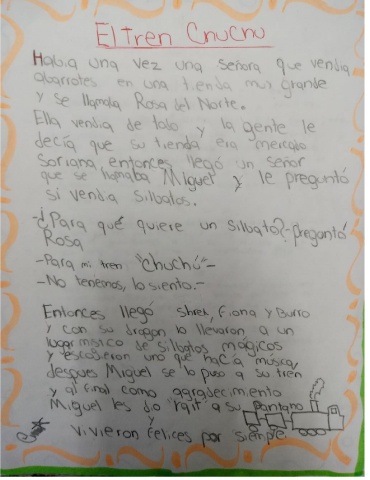 El Tren Chuchu
Había una vez una señora que vendía
abarrotes en una tienda muy grande
y se llamaba Rosa del Norte.
Ella vendía de todo y la gente le
decía que su tienda era mercado
Soriana, entonces llegó un señor
que se llamaba Miguel y le preguntó
si vendía silbatos.
-¿Para qué quiere un silbato?-preguntó
Rosa
-Para mi tren "chuchú"-
-No tenemos, lo siento.-
Entonces llegó shrek, Fiona y Burro
y con su dragon lo llevaron a un
lugar místico de silbatos mágicos
y escogieron uno que hacía música,
despues Miguel se lo puso a su tren
y al final como agradecimiento
Miguel les dio "rait" a su pantano
y
vivieron felices por siempre